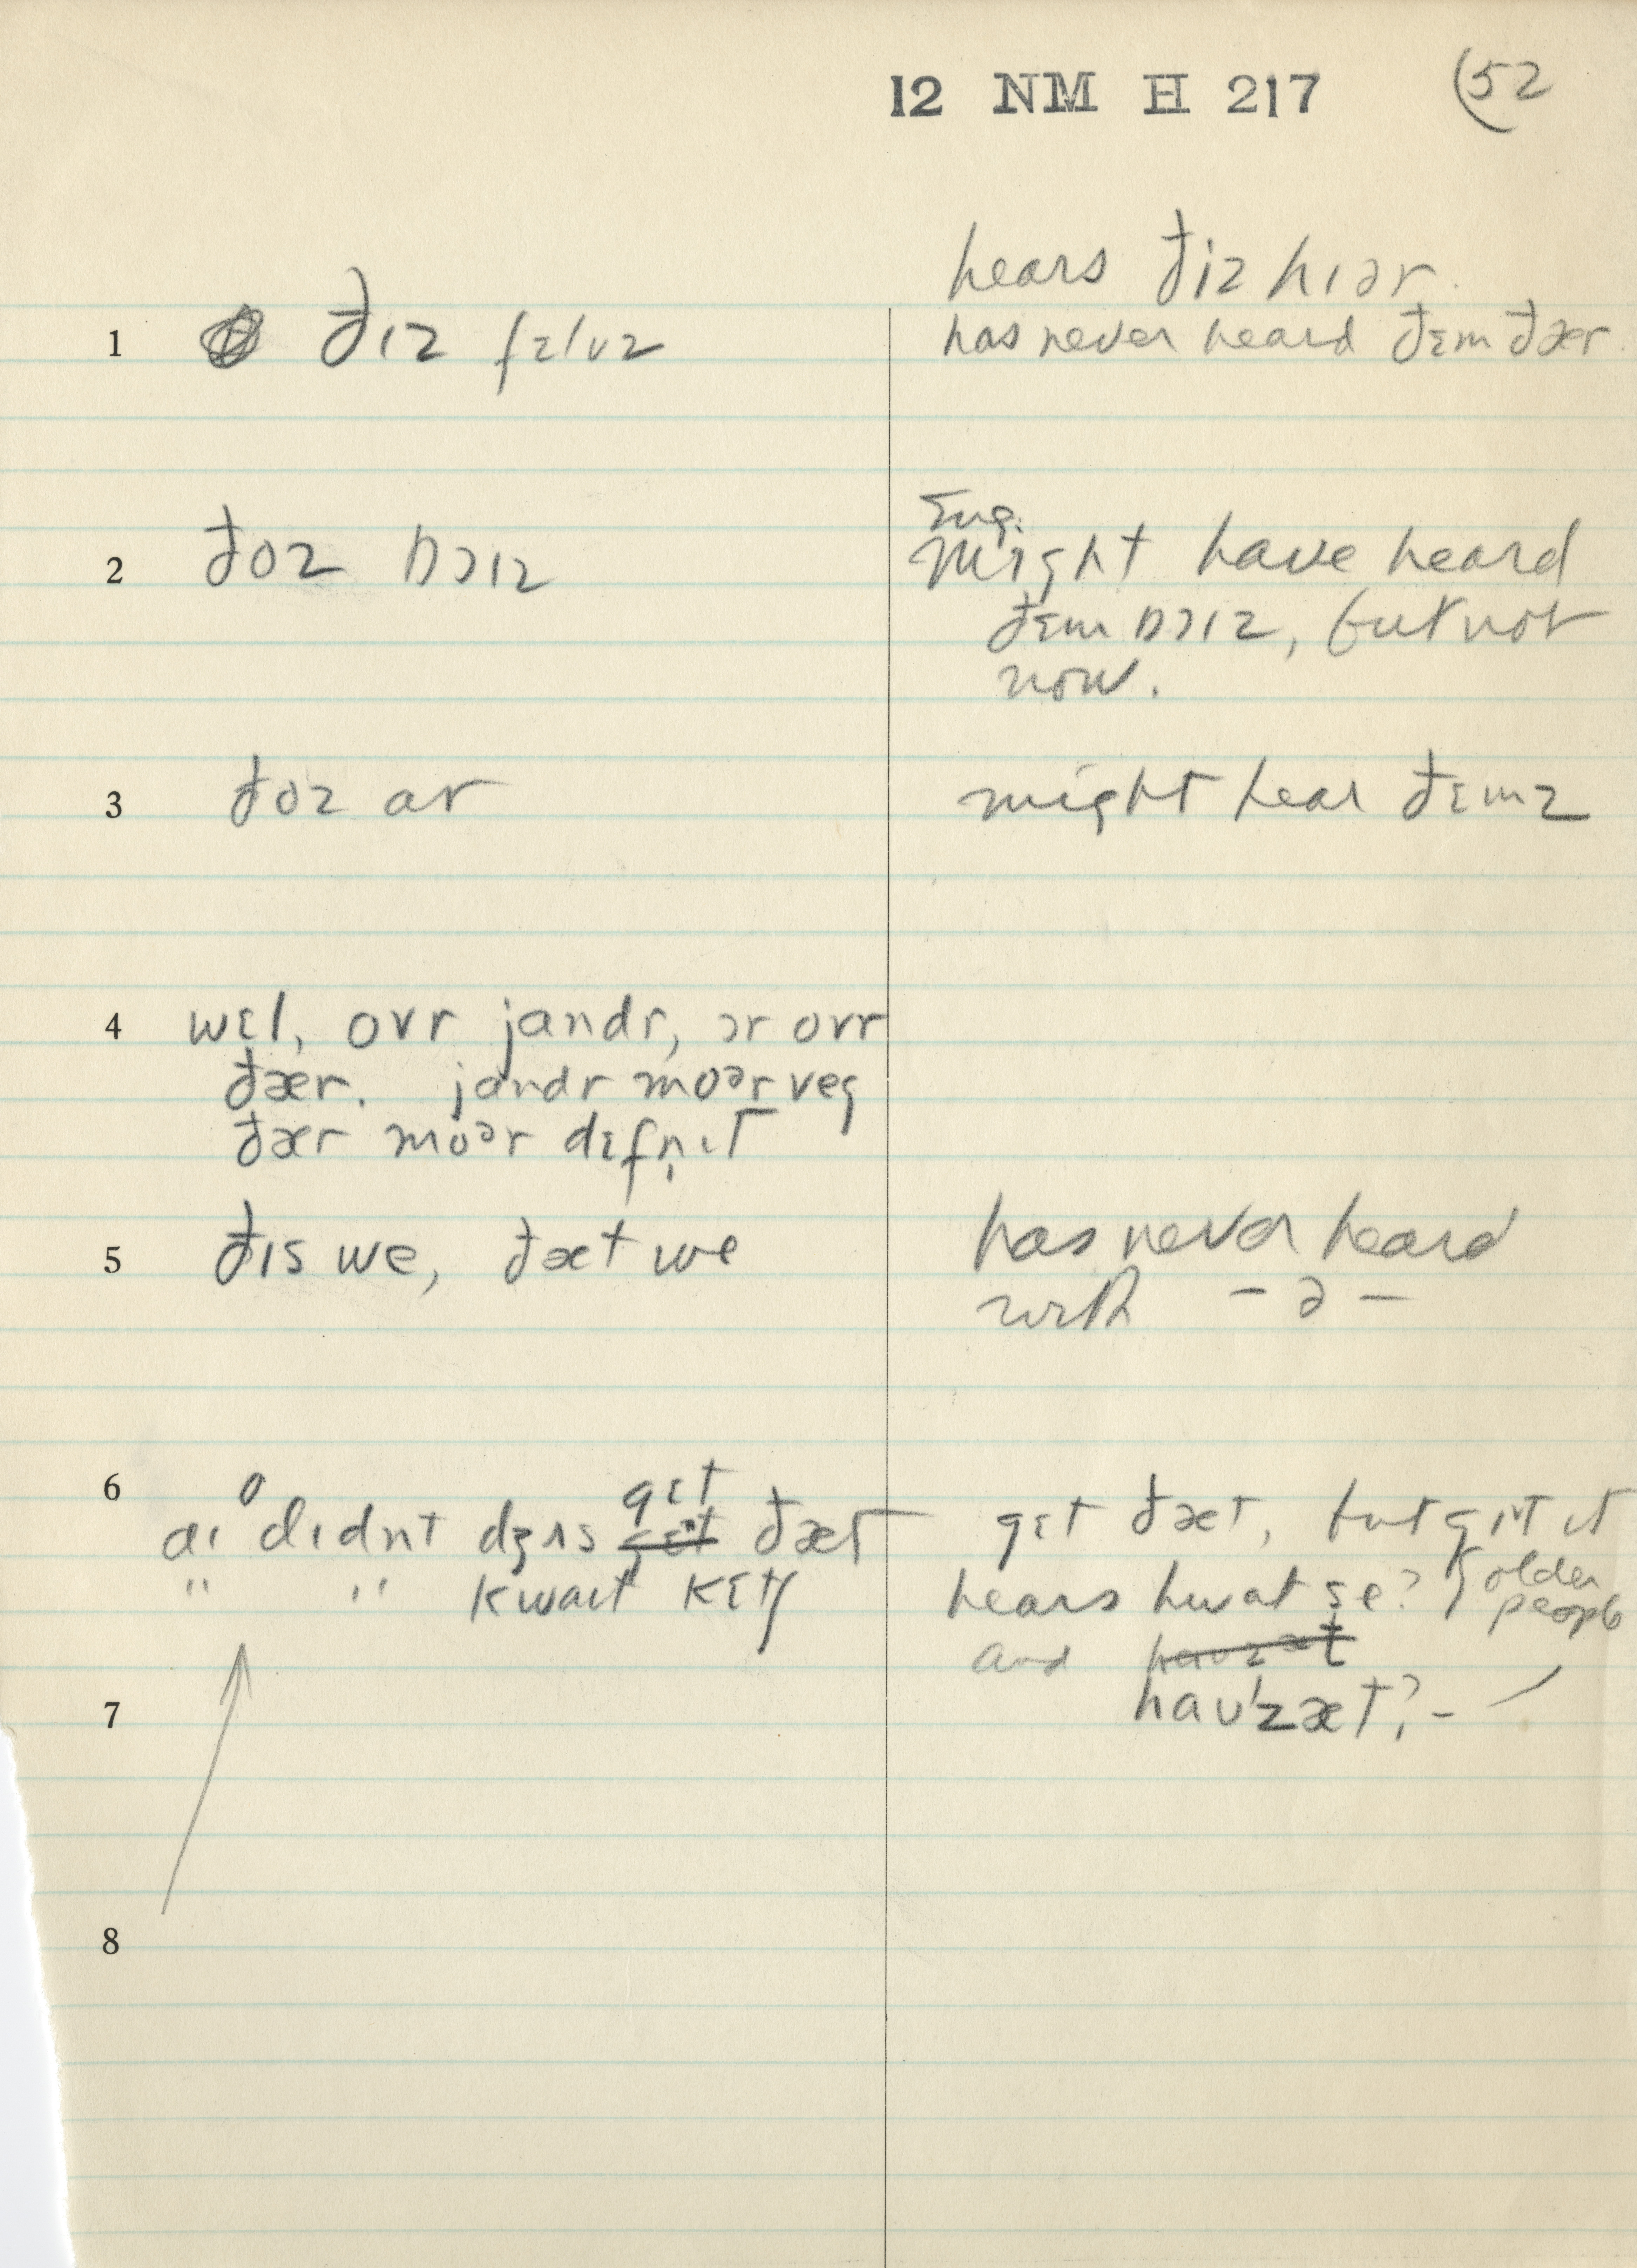 12 NM H 217 (52
hears ðiz hɪər.
1 ðɪz fɛlʊz has never heard ðɛm ðær.
Eng.
2 ðoz bɔɪz Might have heard
ðɛm bɔɪz, but not
now.
3 ðoz ar might hear ðɛmz
4 wɛl, ovr jandr, ɔr ovr
ðær. jandr moər veg
ðær moər dɛfn̩ɪt
5 ðɪs we, ðæt we has never heard
with – ə –
6 o gɛt
aɪ dɪdnt dʒʌs ðæt gɛt ðæt, but gɪt ɪt
" " kwaɪt kɛtʃ hears hwat se? older
people
and
7 haʊ'zæt? –
8